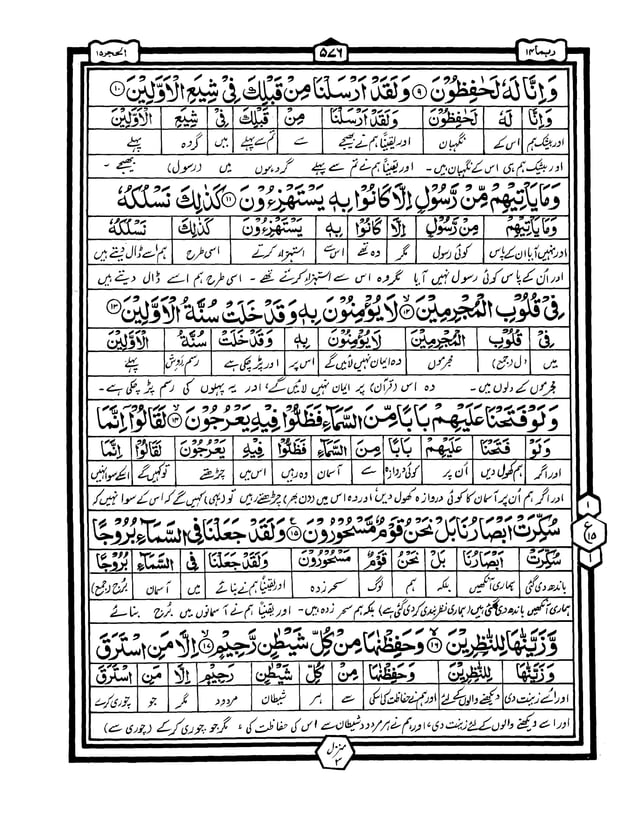 ربما ١٤
٥٧٦
الحجر ١٥
وَاِنَّا لَهٗ لَحٰفِظُوْنَ ۹ وَلَقَدْ اَرْسَلْنَا مِنْ قَبْلِكَ فِیْ شِيَعِ الْاَوَّلِيْنَ ۱۰
وَاِنَّا لَهٗ لَحٰفِظُوْنَ وَلَقَدْ اَرْسَلْنَا مِنْ قَبْلِكَ فِیْ شِيَعِ الْاَوَّلِيْنَ
اور بیشک ہم اس کے نگہبان اور یقیناً ہم نے بھیجے سے تم سے پہلے میں گروہ پہلے
اور بیشک ہم ہی اس کے نگہبان ہیں۔ اور یقیناً ہم نے تم سے پہلے گروہوں میں (رسول) بھیجے۔
وَمَا يَاْتِيْهِمْ مِّنْ رَّسُوْلٍ اِلَّا كَانُوْا بِهٖ يَسْتَهْزِءُوْنَ ۱۱ كَذٰلِكَ نَسْلُكُهٗ
وَمَا يَاْتِيْهِمْ مِّنْ رَّسُوْلٍ اِلَّا كَانُوْا بِهٖ يَسْتَهْزِءُوْنَ كَذٰلِكَ نَسْلُكُهٗ
اور نہیں آیا ان کے پاس کوئی رسول مگر وہ تھے اس سے استہزاء کرتے اسی طرح ہم اسے ڈال دیتے ہیں
اور اُن کے پاس کوئی رسول نہیں آیا مگر وہ اس سے استہزاء کرتے تھے۔ اسی طرح ہم اسے ڈال دیتے ہیں
فِیْ قُلُوْبِ الْمُجْرِمِيْنَ ۱۲ لَا يُؤْمِنُوْنَ بِهٖ وَقَدْ خَلَتْ سُنَّةُ الْاَوَّلِيْنَ ۱۳
فِیْ قُلُوْبِ الْمُجْرِمِيْنَ لَا يُؤْمِنُوْنَ بِهٖ وَقَدْ خَلَتْ سُنَّةُ الْاَوَّلِيْنَ
میں دل (جمع) مجرموں وہ ایمان نہیں لائیں گے اس پر اور پڑ چکی ہے رسم، روش پہلے
مجرموں کے دلوں میں۔ وہ اس (قرآن) پر ایمان نہیں لائیں گے، اور یہ پہلوں کی رسم پڑ چکی ہے۔
وَلَوْ فَتَحْنَا عَلَيْهِمْ بَابًا مِّنَ السَّمَآءِ فَظَلُّوْا فِيْهِ يَعْرُجُوْنَ ۱۴ لَقَالُوْٓا اِنَّمَا
وَلَوْ فَتَحْنَا عَلَيْهِمْ بَابًا مِّنَ السَّمَآءِ فَظَلُّوْا فِيْهِ يَعْرُجُوْنَ لَقَالُوْٓا اِنَّمَا
اور اگر ہم کھول دیں اُن پر کوئی دروازہ سے آسمان وہ رہیں اس میں چڑھتے تو کہیں گے اسکے سوا نہیں
اور اگر ہم اُن پر آسمان کا کوئی دروازہ کھول دیں اور وہ اس میں (دن بھر) چڑھتے رہیں تو (یہی) کہیں گے کہ اس کے سوا نہیں کہ
سُكِّرَتْ اَبْصَارُنَا بَلْ نَحْنُ قَوْمٌ مَّسْحُوْرُوْنَ ۱۵ وَلَقَدْ جَعَلْنَا فِی السَّمَآءِ بُرُوْجًا
سُكِّرَتْ اَبْصَارُنَا بَلْ نَحْنُ قَوْمٌ مَّسْحُوْرُوْنَ وَلَقَدْ جَعَلْنَا فِی السَّمَآءِ بُرُوْجًا
باندھ دی گئی ہماری آنکھیں بلکہ ہم لوگ سحر زدہ اور یقیناً ہم نے بنائے میں آسمان بُرج (جمع)
ہماری آنکھیں باندھ دی گئی ہیں (ہماری نظر بندی کر دی گئی ہے) بلکہ ہم سحر زدہ ہیں۔ اور یقیناً ہم نے آسمانوں میں بُرج بنائے
۱
ع
۱۵
۱
وَّزَيَّنّٰهَا لِلنّٰظِرِيْنَ ۱۶ وَحَفِظْنٰهَا مِنْ كُلِّ شَيْطٰنٍ رَّجِيْمٍ ۱۷ اِلَّا مَنِ اسْتَرَقَ
وَّزَيَّنّٰهَا لِلنّٰظِرِيْنَ وَحَفِظْنٰهَا مِنْ كُلِّ شَيْطٰنٍ رَّجِيْمٍ اِلَّا مَنِ اسْتَرَقَ
اور اسے زینت دی دیکھنے والوں کے لئے اور ہم نے حفاظت کی اسکی سے ہر شیطان مردود مگر جو چوری کرے
اور اسے دیکھنے والوں کے لئے زینت دی، اور ہم نے ہر مردود شیطان سے اس کی حفاظت کی، مگر جو چوری کر کے (چوری سے)
منزل
۳